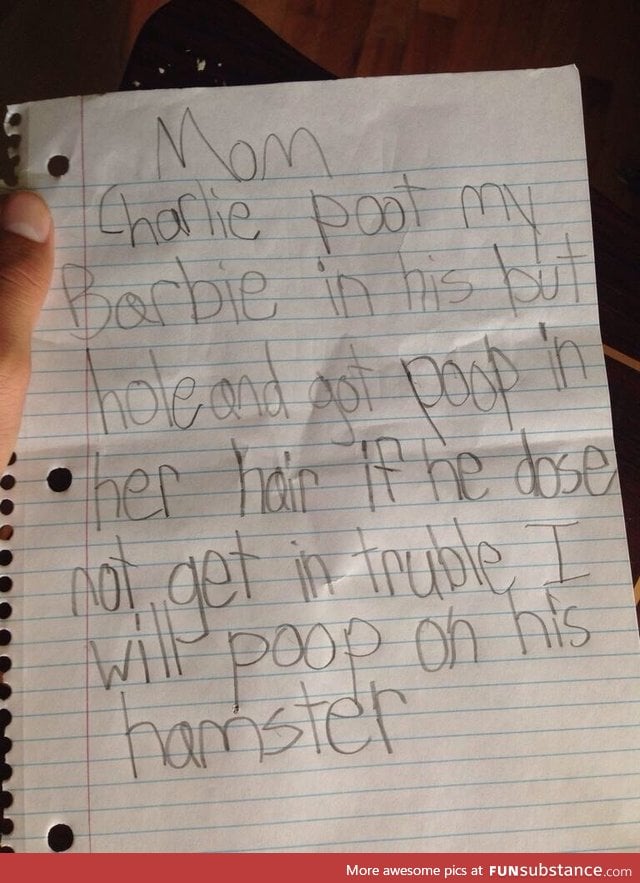 Mom
Charlie poot my
Barbie in his but
hole and got poop in
her hair if he dose
not get in truble I
will poop on his
hamster
More awesome pics at FUNSubstance.com